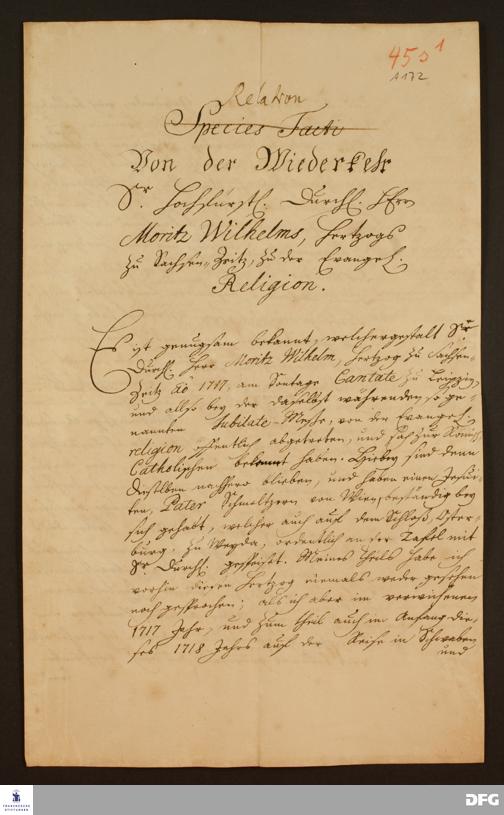 45 s 1
A172
Relation
Species Facti
Von der Wiederkehr
Sr. Hochfürstl. Durchl. Herrn
Moritz Wilhelms, Hertzogs
zu Sachsen-Zeitz, zu der Evangel.
Religion.
Es ist genugsam bekannt, welchergestalt Sr.
Durchl. Herr Moritz Wilhelm, Hertzog zu Sachsen-
Zeitz Ao 1717, am Sontage Cantate zu Leipzig,
und also bey der daselbst währenden so ge-
nannten Jubilate-Messe, von der Evangel.
religion öffentlich abgetreten, und sich zur Römisch
Catholischen bekannt haben. Hierbey sind denn
dieselben nachhero blieben, und haben einen Jesui-
ten, Pater Schmeltzern von Wien beständig bey
sich gehabt, welcher auch auf dem Schloß Oster-
burg, zu Weyda, ordentlich an der Tafel mit
Sr. Durchl. gespeiset. Meines theils habe ich
vorhin diesen Hertzog niemals weder gesehen
noch gesprochen; als ich aber im verwichenen
1717 Jahr, und zum theil auch im Anfang die-
ses 1718 Jahrs auf der Reise in Schwaben
und
FRANCKESCHE
STIFTUNGEN
DFG